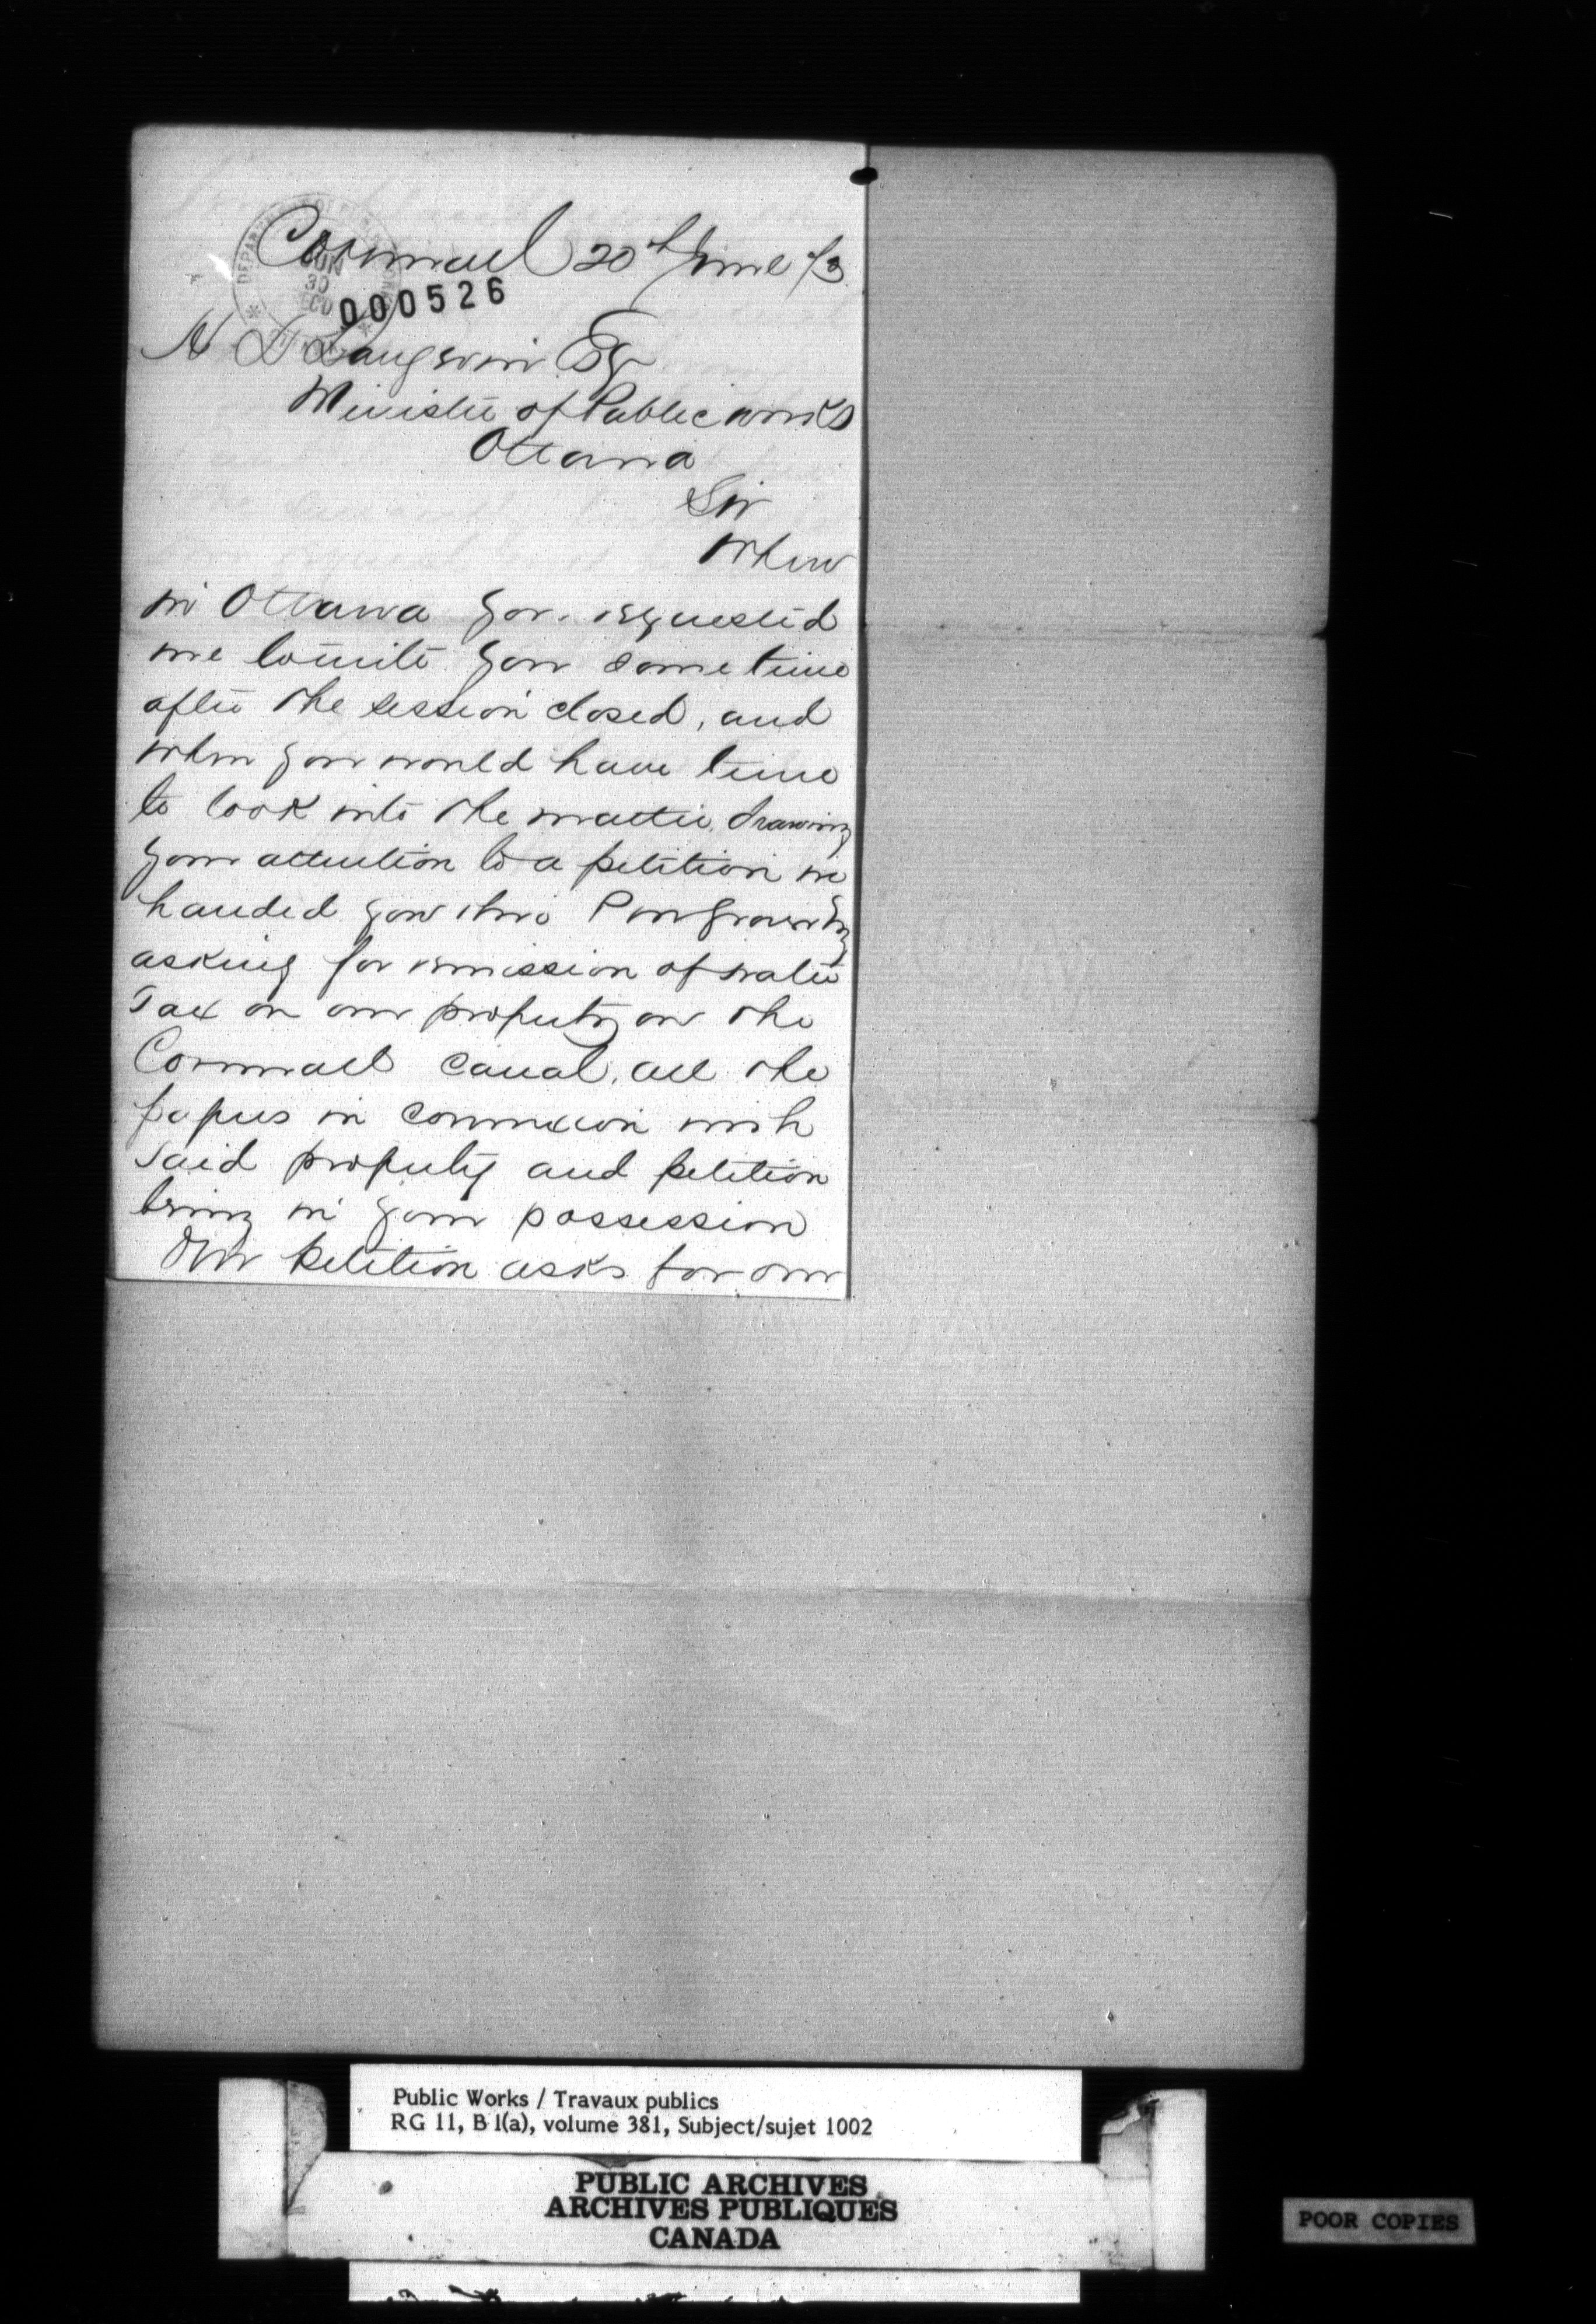 Cornwall 20th June 73
DEPARTMENT OF PUBLIC WORKS
JUN
30
000526
H L Langevin Esq
Minister of Public works
Ottawa
Sir
When
in Ottawa you requested
me to write you some time
after the session closed, and
when you would have time
to look into the matter, drawing
your attention to a petition we
handed you thro
asking for remission of water
Tax on our property on the
Cornwall canal, all the
papers in connexion with
said property and petition
being in your possession
Our petition asks for our
Public Works / Travaux publics
RG 11, B 1(a), volume 381, Subject/sujet 1002
PUBLIC ARCHIVES
ARCHIVES PUBLIQUES
CANADA
POOR COPIES